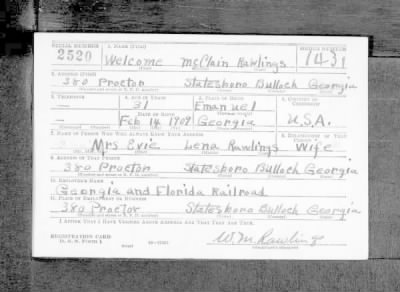 SERIAL NUMBER 1. NAME (Print) ORDER NUMBER
2520 Welcome McClain Rawlings 1431
2. ADDRESS (Print)
380 Proctor Statesboro Bulloch Georgia
3. TELEPHONE 4. AGE IN YEARS 5. PLACE OF BIRTH 6. COUNTRY OF CITIZENSHIP
— 31 Emanuel
DATE OF BIRTH
— Feb 14 1909 Georgia U.S.A.
7. NAME OF PERSON WHO WILL ALWAYS KNOW YOUR ADDRESS 8. RELATIONSHIP OF THAT PERSON
Mrs Evie Lena Rawlings Wife
9. ADDRESS OF THAT PERSON
380 Proctor Statesboro Bulloch Georgia
10. EMPLOYER'S NAME
Georgia and Florida Railroad
11. PLACE OF EMPLOYMENT OR BUSINESS
380 Proctor Statesboro Bulloch Georgia
I AFFIRM THAT I HAVE VERIFIED ABOVE ANSWERS AND THAT THEY ARE TRUE.
REGISTRATION CARD
D. S. S. FORM 1
W.M. Rawlings